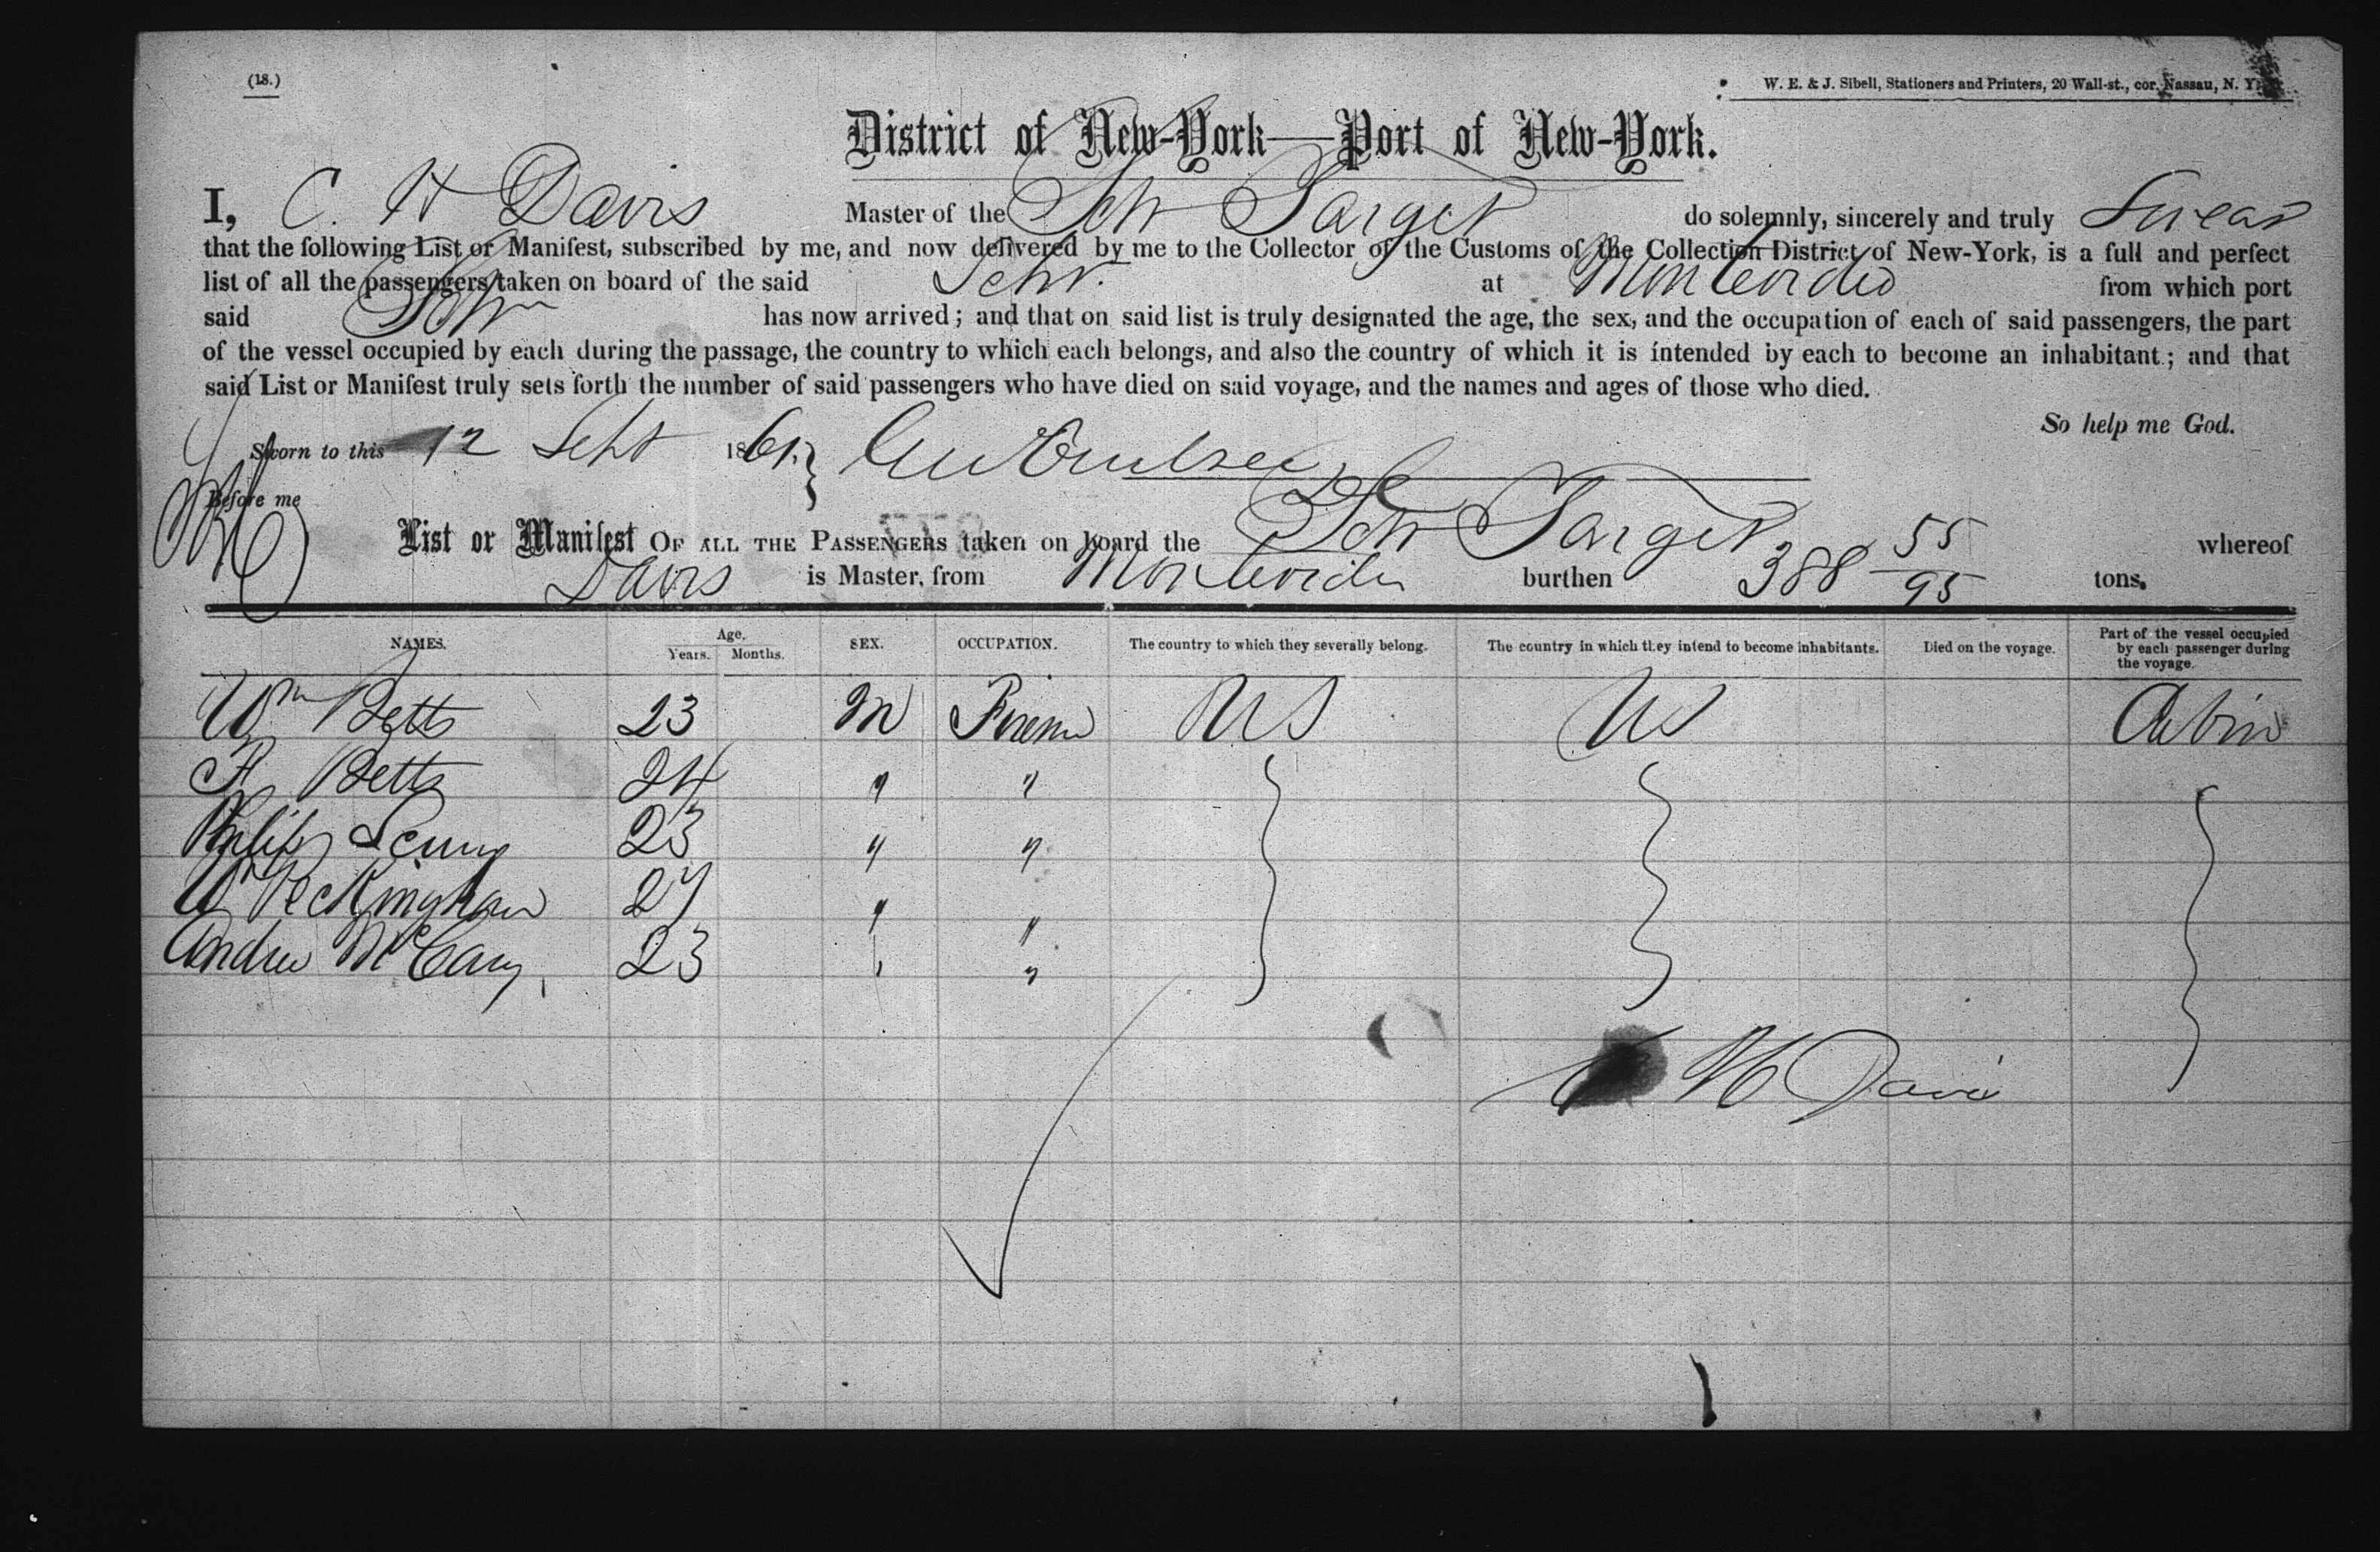 (18.)
W. E. & J. Sibell, Stationers and Printers, 20 Wall-st., cor. Nassau, N. Y.
District of New-York—Port of New-York.
I, C. H Davis Master of the Schr Target do solemnly, sincerely and truly Swear
that the following List or Manifest, subscribed by me, and now delivered by me to the Collector of the Customs of the Collection District of New-York, is a full and perfect
list of all the passengers taken on board of the said Schr. at Montevideo from which port
said Schr has now arrived; and that on said list is truly designated the age, the sex, and the occupation of each of said passengers, the part
of the vessel occupied by each during the passage, the country to which each belongs, and also the country of which it is intended by each to become an inhabitant; and that
said List or Manifest truly sets forth the number of said passengers who have died on said voyage, and the names and ages of those who died.
So help me God.
Sworn to this 12 Sept 1861.
Before me
List or Manifest OF ALL THE PASSENGERS taken on board the Schr Target whereof
Davis is Master, from Montevideo burthen 388 55/95 tons.
NAMES. Age. Years. Months. SEX. OCCUPATION. The country to which they severally belong. The country in which they intend to become inhabitants. Died on the voyage. Part of the vessel occupied by each passenger during the voyage.
Wm Betts 23 M US US Cabin
Betts 24 " "
Philip 23 " "
Wm Peckingham 27 " "
Andrew McCary 23 " "
C H Davis